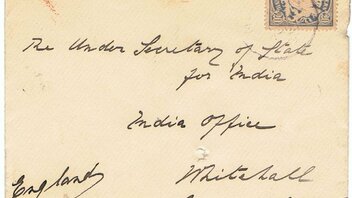 The Under Secretary of State
for India
India Office
Whitehall
England